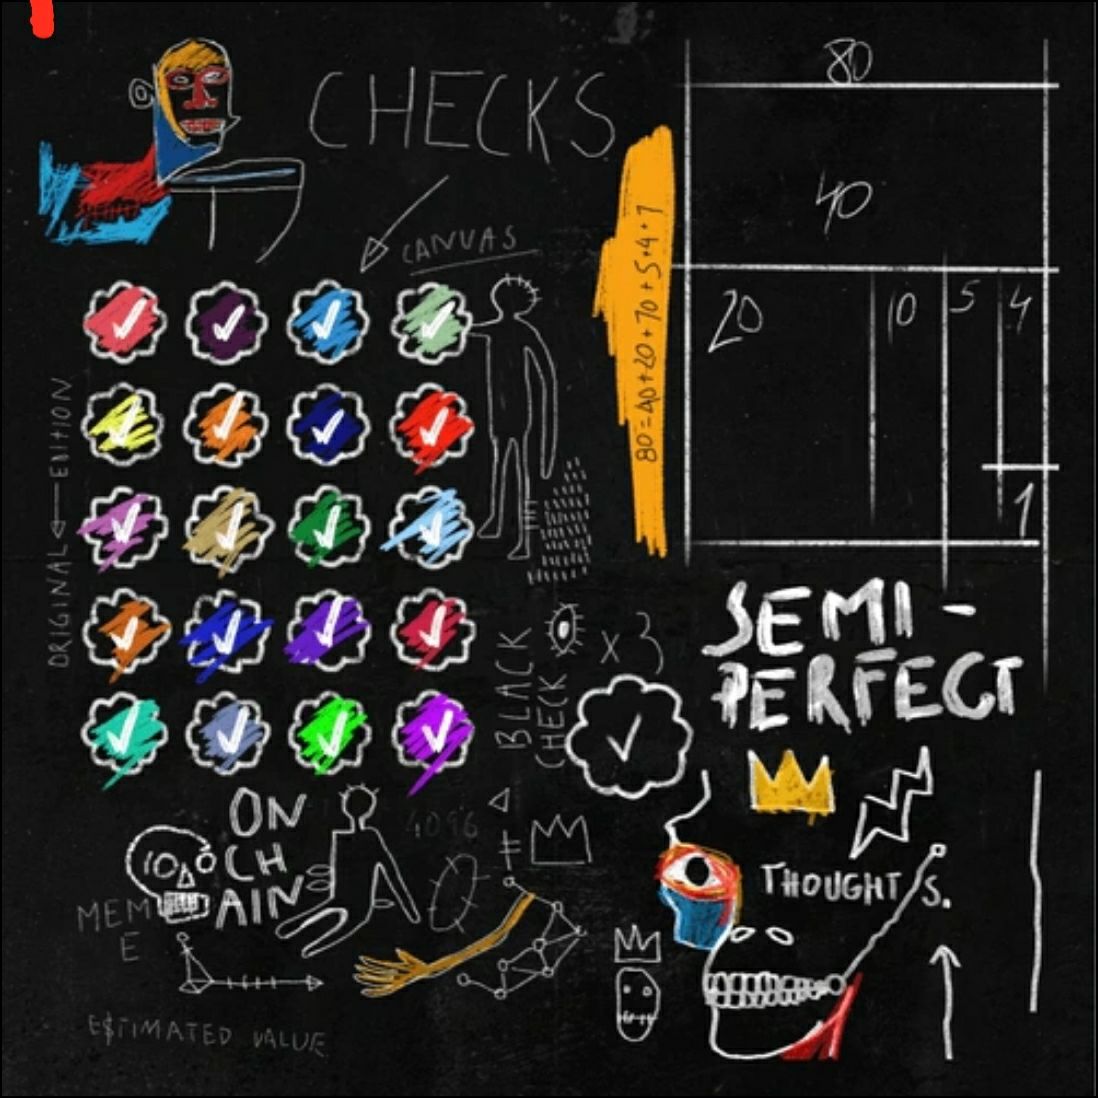 CHECKS
CANVAS
ORIGINAL ← EDITION
80
40
20
10
5
4
1
80=40+20+10+5+4+1
SEMI-
PERFECT
BLACK
CHECK
X3
ON
CH
AIN
4096
MEM
E
THOUGHTS.
E$TIMATED VALUE